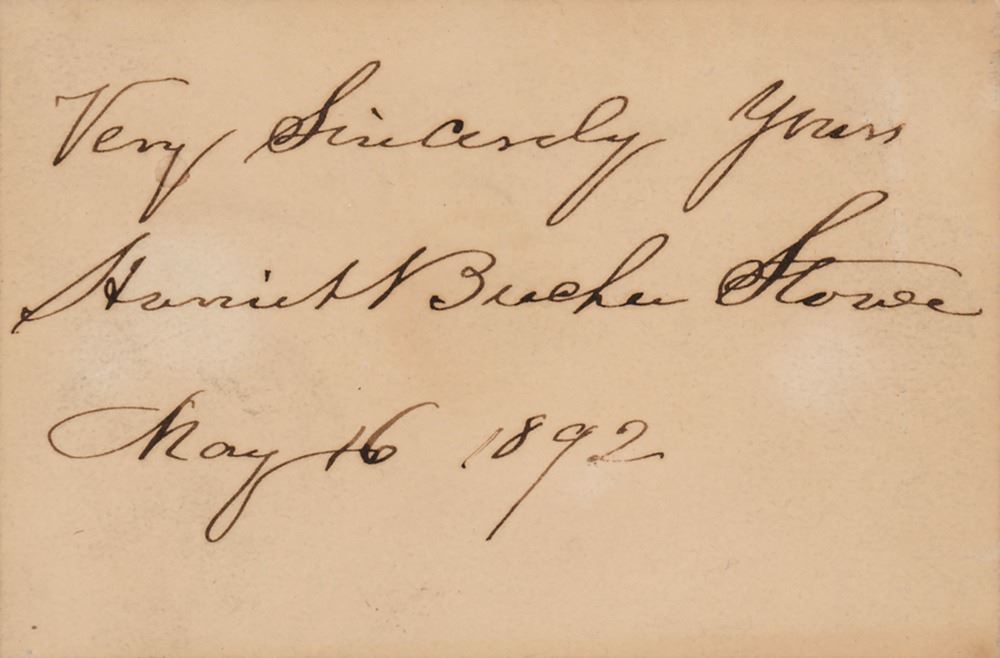 Very Sincerely Yours
Harriet Beecher Stowe
May 16 1892